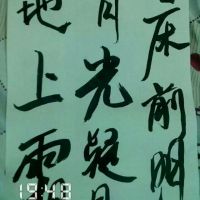 床前明
月光疑是
地上霜
19:48